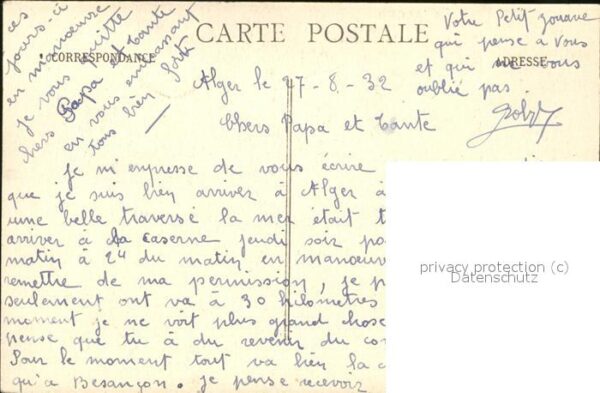 CARTE POSTALE
CORRESPONDANCE
ADRESSE
Alger le 27-8-32
Chers Papa et Tante
Je m'empresse de vous écrire
que je suis bien arriver à Alger à
une belle traversé la mer était t
arriver à la caserne jeudi soir po
matin à 2h du matin en manoeuv
remettre de ma permission, je p
seulement ont va à 30 kilomètres
moment je ne voit plus grand chose
pense que tu à du revenir du co
Pour le moment tout va bien la c
qu'à Besançon. je pense recevoir
ces
jours-ci
en manoeuvre
Je vous quitte
chers Papa et Tante
en vous embrassant
tous bien fort
Votre Petit zouave
qui pense à vous
et qui ne vous
oublié pas.
privacy protection (c)
Datenschutz